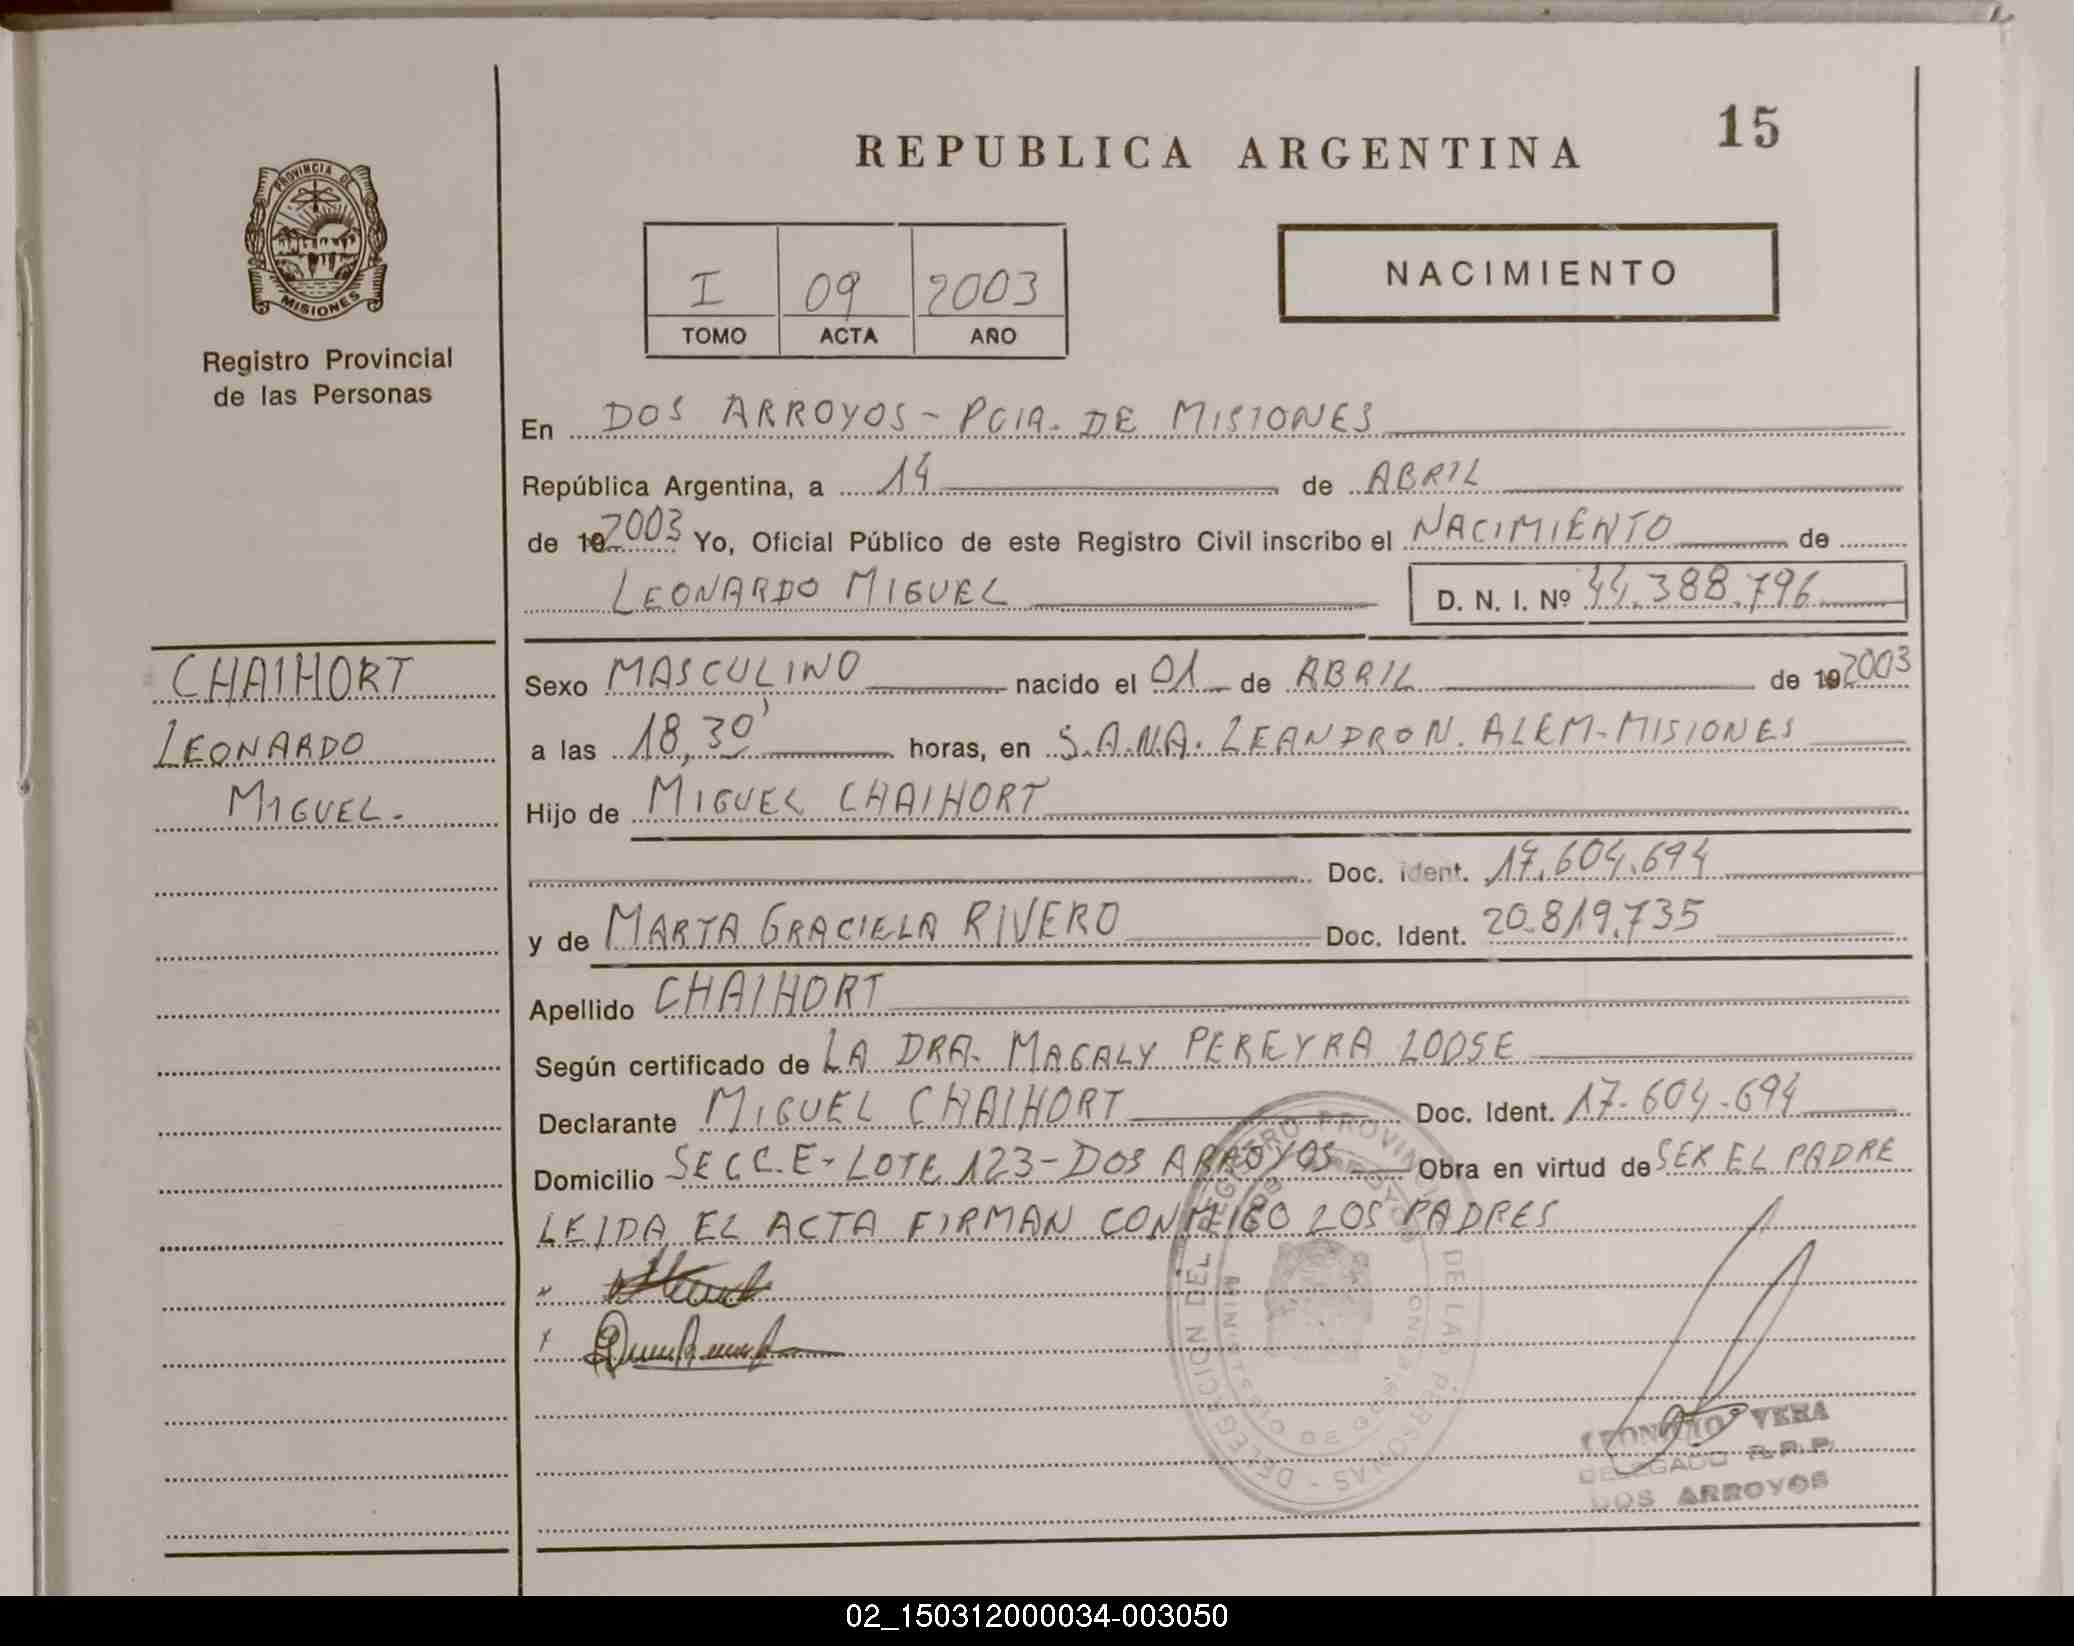 REPUBLICA ARGENTINA
15
PROVINCIA DE
MISIONES
Registro Provincial
de las Personas
I 09 2003
TOMO ACTA AÑO
NACIMIENTO
En DOS ARROYOS - PCIA. DE MISIONES
República Argentina, a 14 de ABRIL
de 19 2003 Yo, Oficial Público de este Registro Civil inscribo el NACIMIENTO de
LEONARDO MIGUEL D. N. I. Nº 44.388.796
CHAIHORT
LEONARDO
MIGUEL.
Sexo MASCULINO nacido el 01 de ABRIL de 19 2003
a las 18,30' horas, en S.A.N.A. LEANDRO N. ALEM - MISIONES
Hijo de MIGUEL CHAIHORT
Doc. ident. 17.604.694
y de MARTA GRACIELA RIVERO Doc. Ident. 20.819.735
Apellido CHAIHORT
Según certificado de LA DRA. MAGALY PEREYRA LOOSE
Declarante MIGUEL CHAIHORT Doc. Ident. 17.604.694
Domicilio SECC. E - LOTE 123 - DOS ARROYOS Obra en virtud de SER EL PADRE
LEIDA EL ACTA FIRMAN CONMIGO LOS PADRES
DELEGACION DEL REGISTRO PROVINCIAL DE LAS PERSONAS -
MINISTERIO DE GOB
DOS ARROYOS
LEONCIO VERA
DELEGADO R.P.P.
DOS ARROYOS
02_150312000034-003050